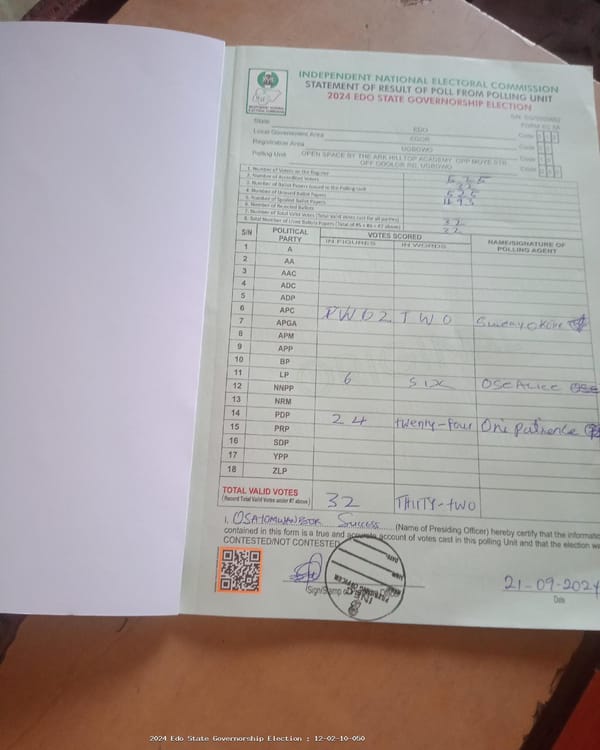 INDEPENDENT NATIONAL ELECTORAL COMMISSION
STATEMENT OF RESULT OF POLL FROM POLLING UNIT
2024 EDO STATE GOVERNORSHIP ELECTION
State EDO Code
Local Government Area EGOR Code
Registration Area UGBOWO Code
Polling Unit OPEN SPACE BY THE ARK HILLTOP ACADEMY OPP MOVE STR. Code
OFF OGOLOR RD, UGBOWO
1. Number of Voters on the Register 525
2. Number of Accredited Voters 32
3. Number of Ballot Papers Issued to the Polling Unit 525
4. Number of Unused Ballot Papers 493
5. Number of Spoiled Ballot Papers
6. Number of Rejected Ballots
7. Number of Total Valid Votes (Total Valid Votes cast for all parties) 32
8. Total Number of Used Ballot Papers (Total of #5 + #6 + #7 above) 32
S/N POLITICAL PARTY VOTES SCORED NAME/SIGNATURE OF POLLING AGENT
IN FIGURES IN WORDS
1 A
2 AA
3 AAC
4 ADC
5 ADP
6 APC 2 TWO Sunday Okoh
7 APGA
8 APM
9 APP
10 BP
11 LP 6 SIX OSE ALICE
12 NNPP
13 NRM
14 PDP 24 twenty-four Oni patience
15 PRP
16 SDP
17 YPP
18 ZLP
TOTAL VALID VOTES 32 THIRTY-TWO
(Record Total Valid Votes under #7 above)
I, Success (Name of Presiding Officer) hereby certify that the informatio
contained in this form is a true and accurate account of votes cast in this polling Unit and that the election wa
CONTESTED/NOT CONTESTED
Sign/Stamp
21-09-2024
Date
2024 Edo State Governorship Election : 12-02-10-050